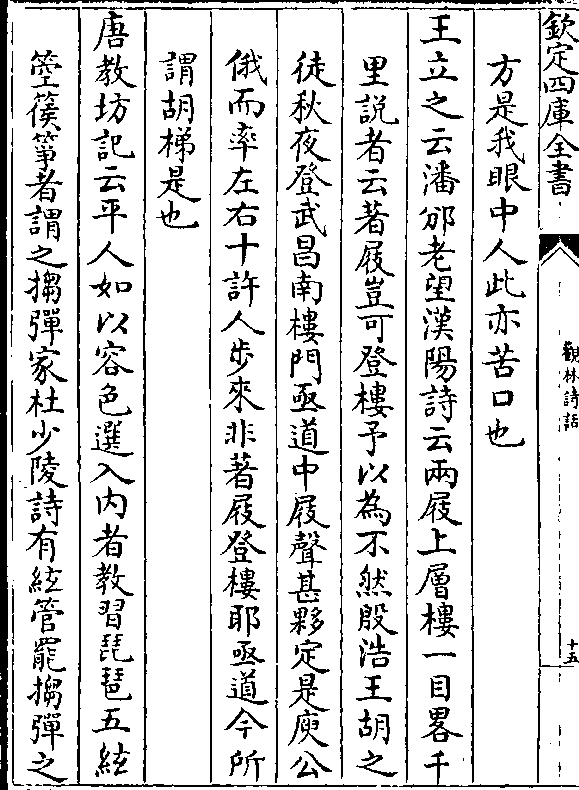 欽定四庫全書
觀林詩話
十五
方是我眼中人此亦苦口也
王立之云潘邠老望漢陽詩云兩屐上層樓一目畧千
里説者云著屐豈可登樓予以為不然殷浩王胡之
徒秋夜登武昌南樓門亟道中屐聲甚夥定是庾公
俄而率左右十許人步來非著屐登樓耶亟道今所
謂胡梯是也
唐教坊記云平人如以容色選入内者教習琵琶五絃
箜篌箏者謂之搊彈家杜少陵詩有絃管罷搊彈之